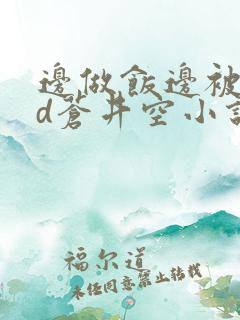 邊做飯邊被
d蒼井空小說
福尔道
未经同意禁止转载